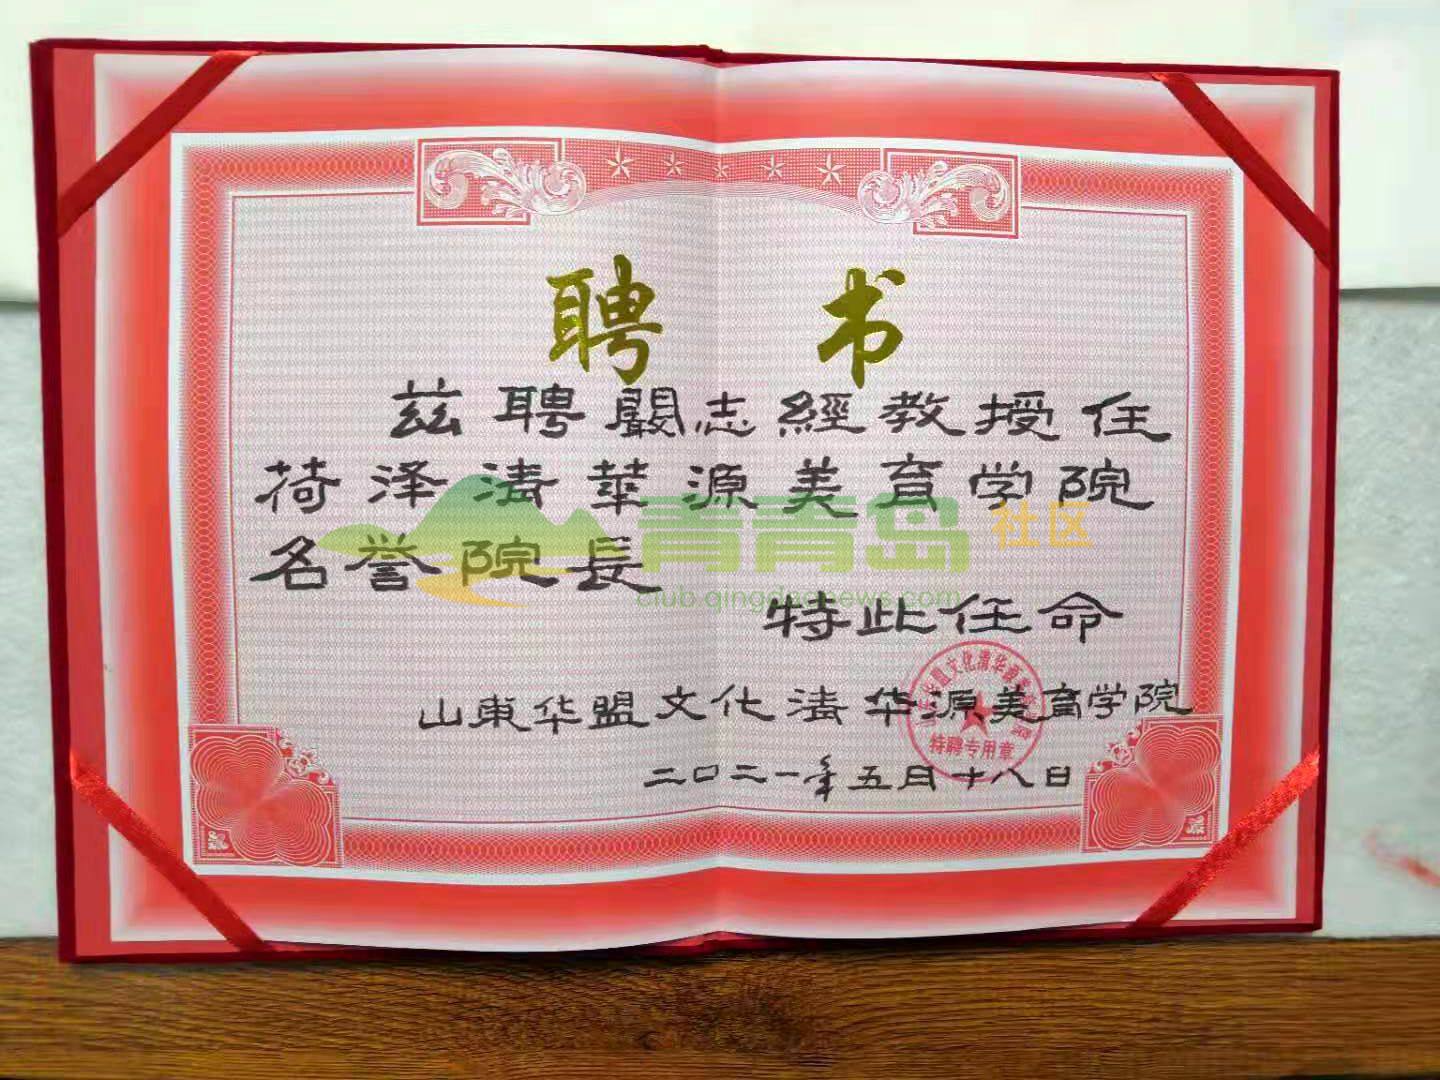 聘书
兹聘闞志經教授任
荷泽清華源美育学院
名誉院長
特此任命
山東华盟文化清华源美育学院
二〇二一年五月十八日
山东华盟文化清华源美育学院
特聘专用章
青青岛社区
club.qingdaonews.com